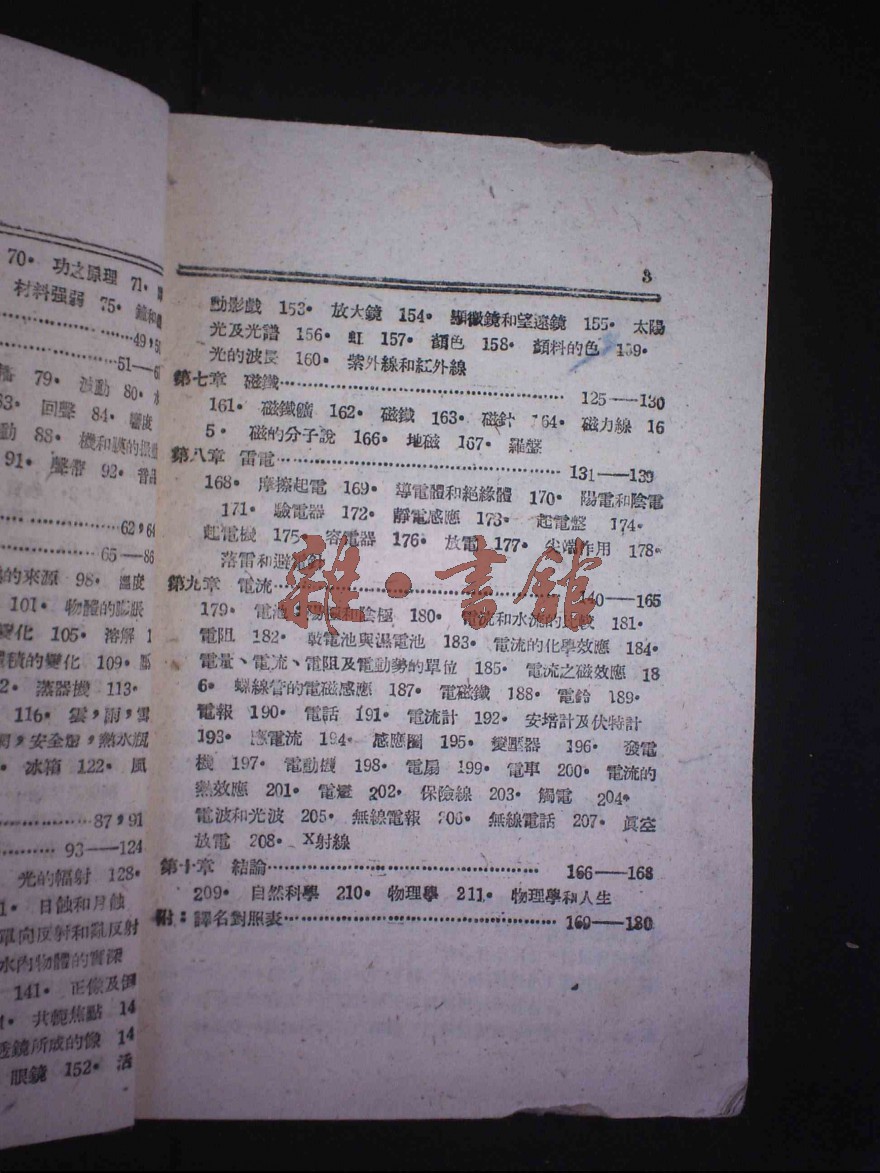 70· 功之原理 71·
材料强弱 75·
49,
51——
79· 波動 80· 水
回聲 84·
88·
91· 92·
62,
65——86
的來源 98· 溫度
101· 物體的膨脹
變化 105· 溶解 1
體積的變化 109·
2· 蒸器機 113·
116· 雲,雨,雪
安全燈,熱水瓶
· 冰箱 122· 風
87,91
93——124
光的輻射 128·
1· 日蝕和月蝕
單向反射和亂反射
水內物體的實深
141· 正像及倒
· 共軛焦點 14
透鏡所成的像 14
眼鏡 152· 活
3
動影戲 153· 放大鏡 154· 顯微鏡和望遠鏡 155· 太陽
光及光譜 156· 虹 157· 顏色 158· 顏料的色 159·
光的波長 160· 紫外線和紅外線
第七章 磁鐵 125——130
161· 磁鐵礦 162· 磁鐵 163· 磁針 164· 磁力線 16
5· 磁的分子說 166· 地磁 167· 羅盤
第八章 雷電 131——139
168· 摩擦起電 169· 導電體和絕緣體 170· 陽電和陰電
171· 驗電器 172· 靜電感應 173· 起電盤 174·
起電機 175· 容電器 176· 放電 177· 尖端作用 178·
落雷和避雷針
雜·書館
第九章 電流 140——165
179· 電池,陽極和陰極 180· 電流和水流的比較 181·
電阻 182· 乾電池與濕電池 183· 電流的化學效應 184·
電量、電流、電阻及電動勢的單位 185· 電流之磁效應 18
6· 螺線管的電磁感應 187· 電磁鐵 188· 電鈴 189·
電報 190· 電話 191· 電流計 192· 安培計及伏特計
193· 應電流 194· 感應圈 195· 變壓器 196· 發電
機 197· 電動機 198· 電扇 199· 電車 200· 電流的
熱效應 201· 電燈 202· 保險線 203· 觸電 204·
電波和光波 205· 無線電報 206· 無線電話 207· 眞空
放電 208· X射線
第十章 結論 166——168
209· 自然科學 210· 物理學 211· 物理學和人生
附:譯名對照表 169——180